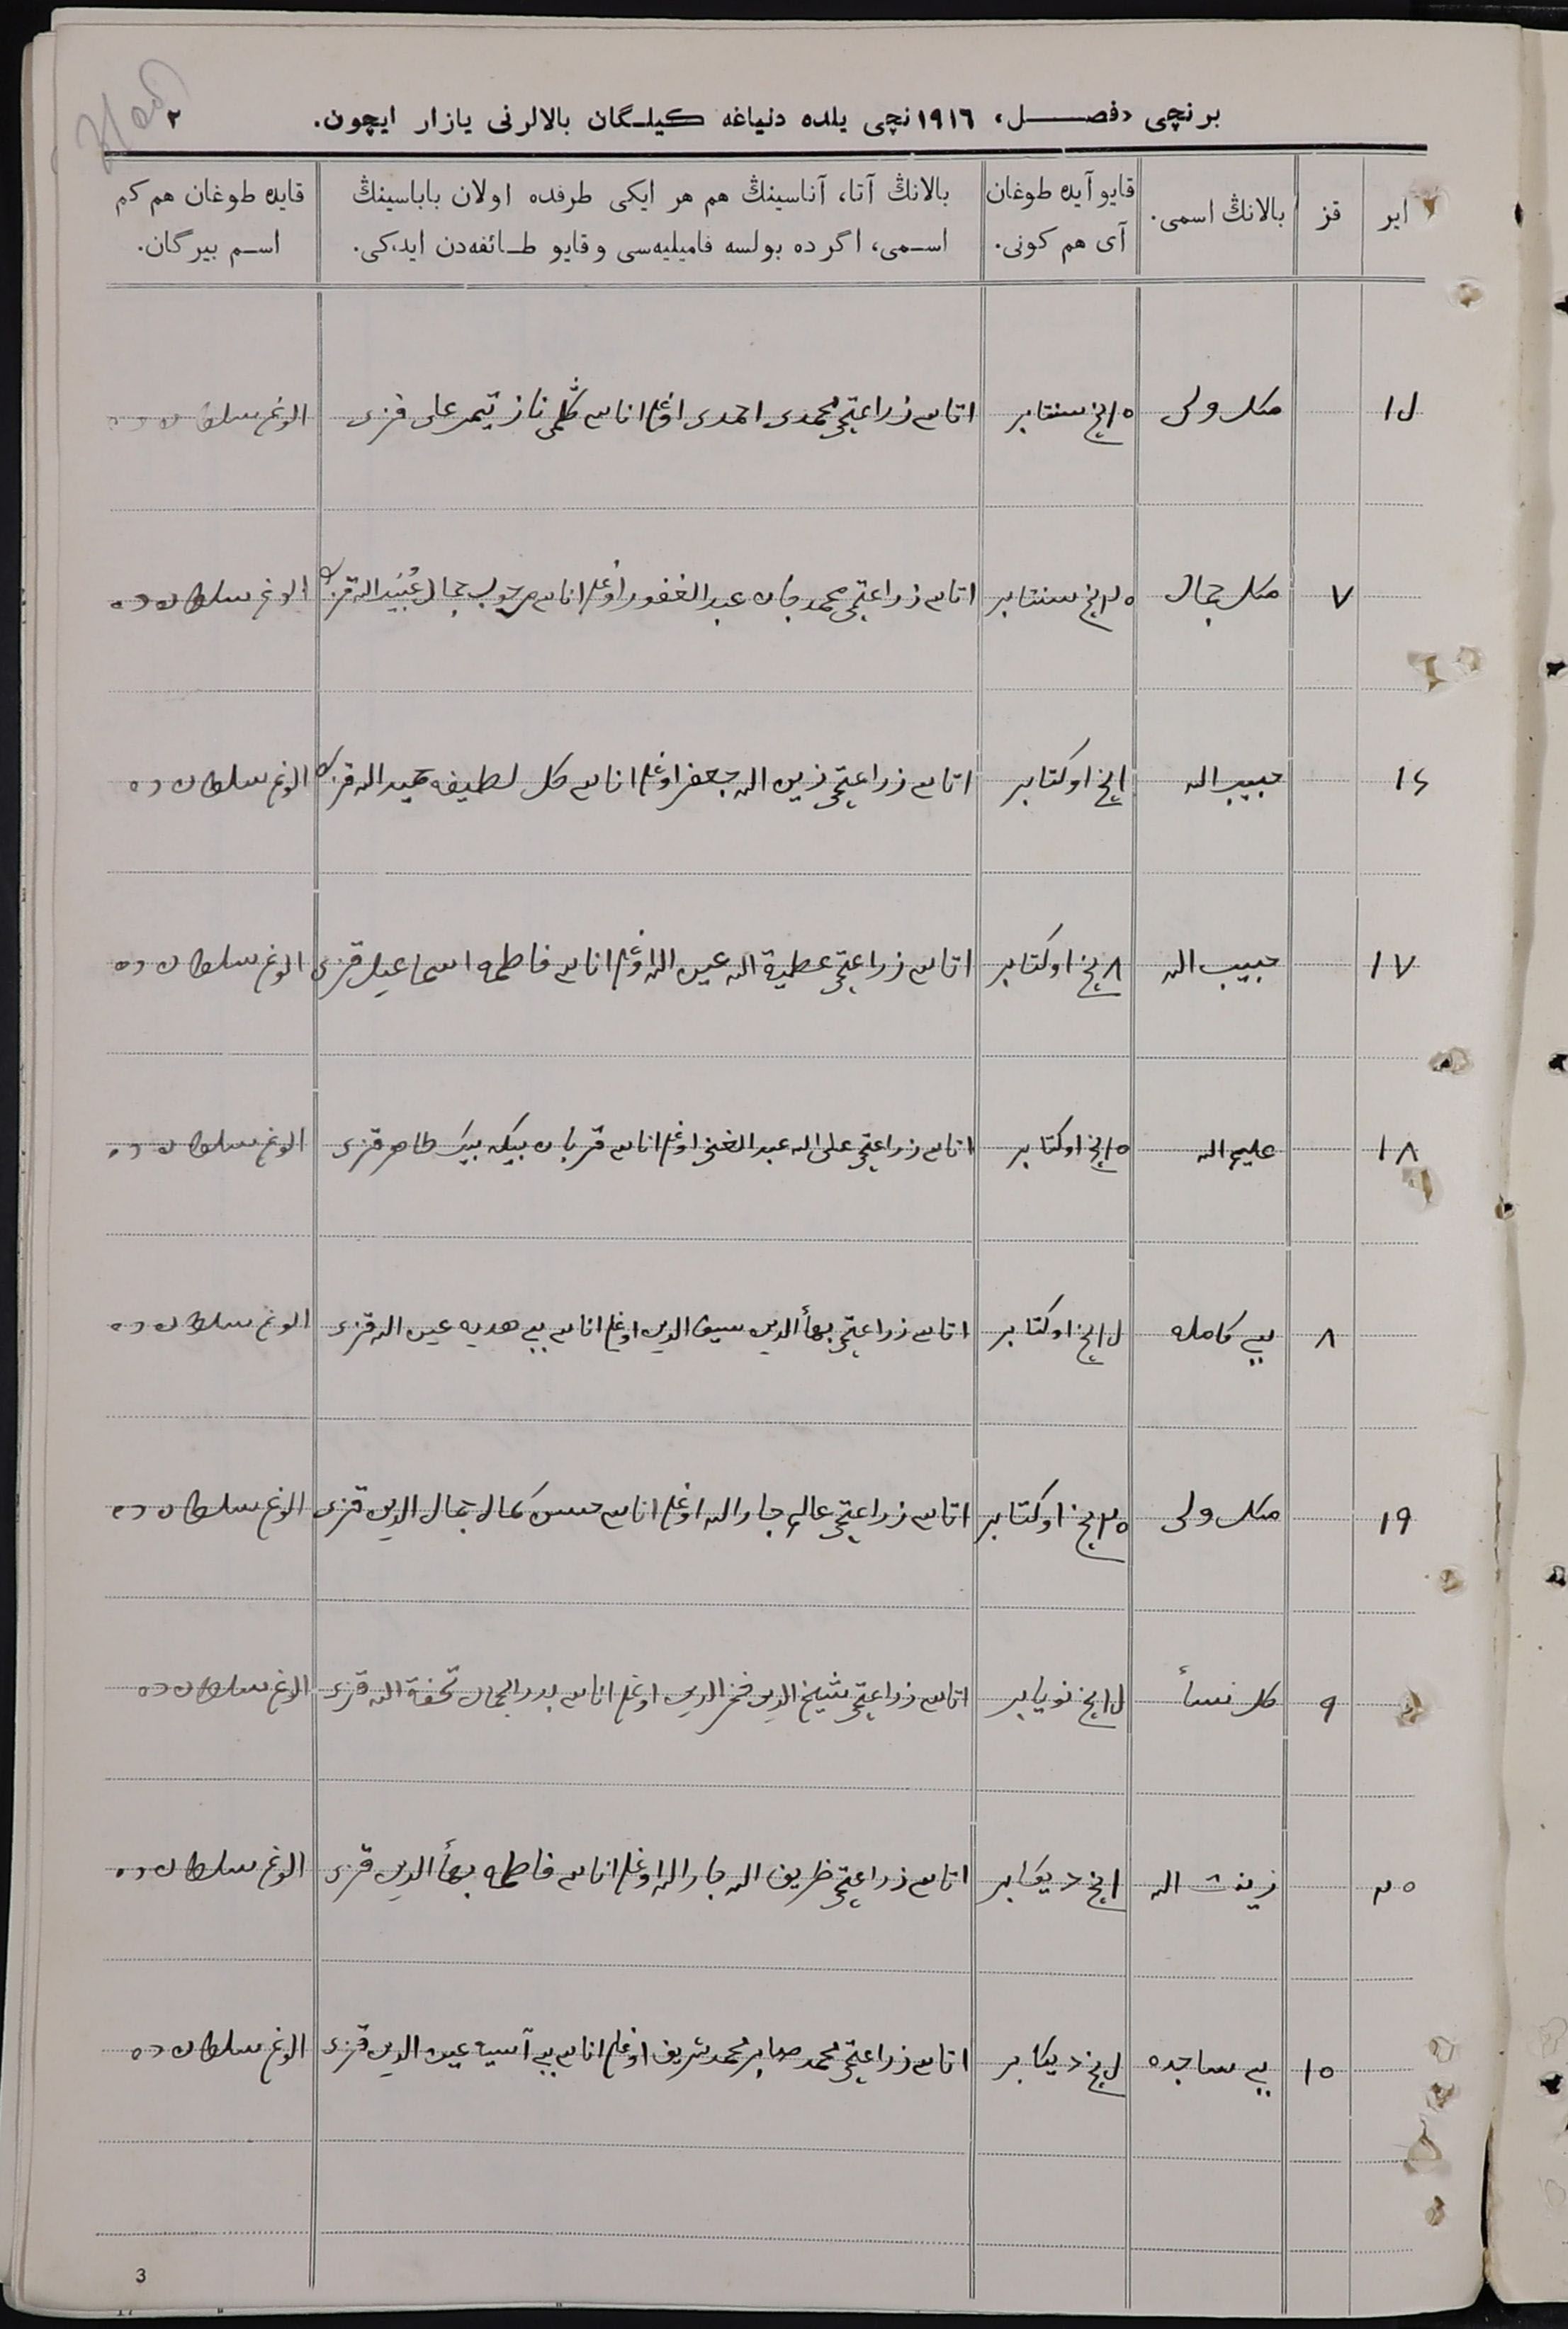 برنچی «فصل» ١٩١٦نچی یلده دنیاغه کیلگان بالالرنی یازار ایچون. ٢
ایر قز بالانڭ اسمی. قایو آیده طوغان آی هم کونی. بالانڭ آتا، آناسینڭ هم هر ایکی طرفده اولان باباسینڭ اسمی، اگر ده بولسه فامیلیه‌سی و قایو طائفه‌دن ایدکی. قایده طوغان هم کم اسم بیرگان.
١٥نچی سنتابر اتاسی زراعتچی محمدی احمدی اوغلی اناسی تیمرعلی قزی
٧ ٢٥نچی سنتابر اتاسی زراعتچی محمدجان عبدالغفور اوغلی اناسی عبیدالله قزی الوغ سلطان ده
١٦ حبیب الله ١نچی اوکتابر اتاسی زراعتچی زین الله جعفر اوغلی اناسی کل لطیفه قزی الوغ سلطان ده
١٧ حبیب الله ٨نچی اوکتابر اتاسی زراعتچی عطیة الله عین الله اوغلی اناسی فاطمه اسماعیل قزی الوغ سلطان ده
١٨ علیم الله ١٥نچی اوکتابر اتاسی زراعتچی علی الله عبدالغنی اوغلی اناسی قربان بیکه بیک طاهر قزی الوغ سلطان ده
٨ بی کامله اوکتابر اتاسی زراعتچی بهأالدین سیف الدین اوغلی اناسی بی هدیه عین الله قزی الوغ سلطان ده
١٩ ٢٥نچی اوکتابر اتاسی زراعتچی عالم جارالله اوغلی اناسی حسن کمال جمال الدین قزی الوغ سلطان ده
٩ کل نسأ نویابر اتاسی زراعتچی شیخ الدین فخرالدین اوغلی اناسی بدرالجمال تحفة الله قزی الوغ سلطان ده
٢٠ زینت الله ١نچی دیکابر اتاسی زراعتچی ظریف الله جارالله اوغلی اناسی فاطمه بهأالدین قزی الوغ سلطان ده
١٠ بی ساجده دیکابر اتاسی زراعتچی محمدصابر محمدشریف اوغلی اناسی بی آسیه عین الدین قزی الوغ سلطان ده
3